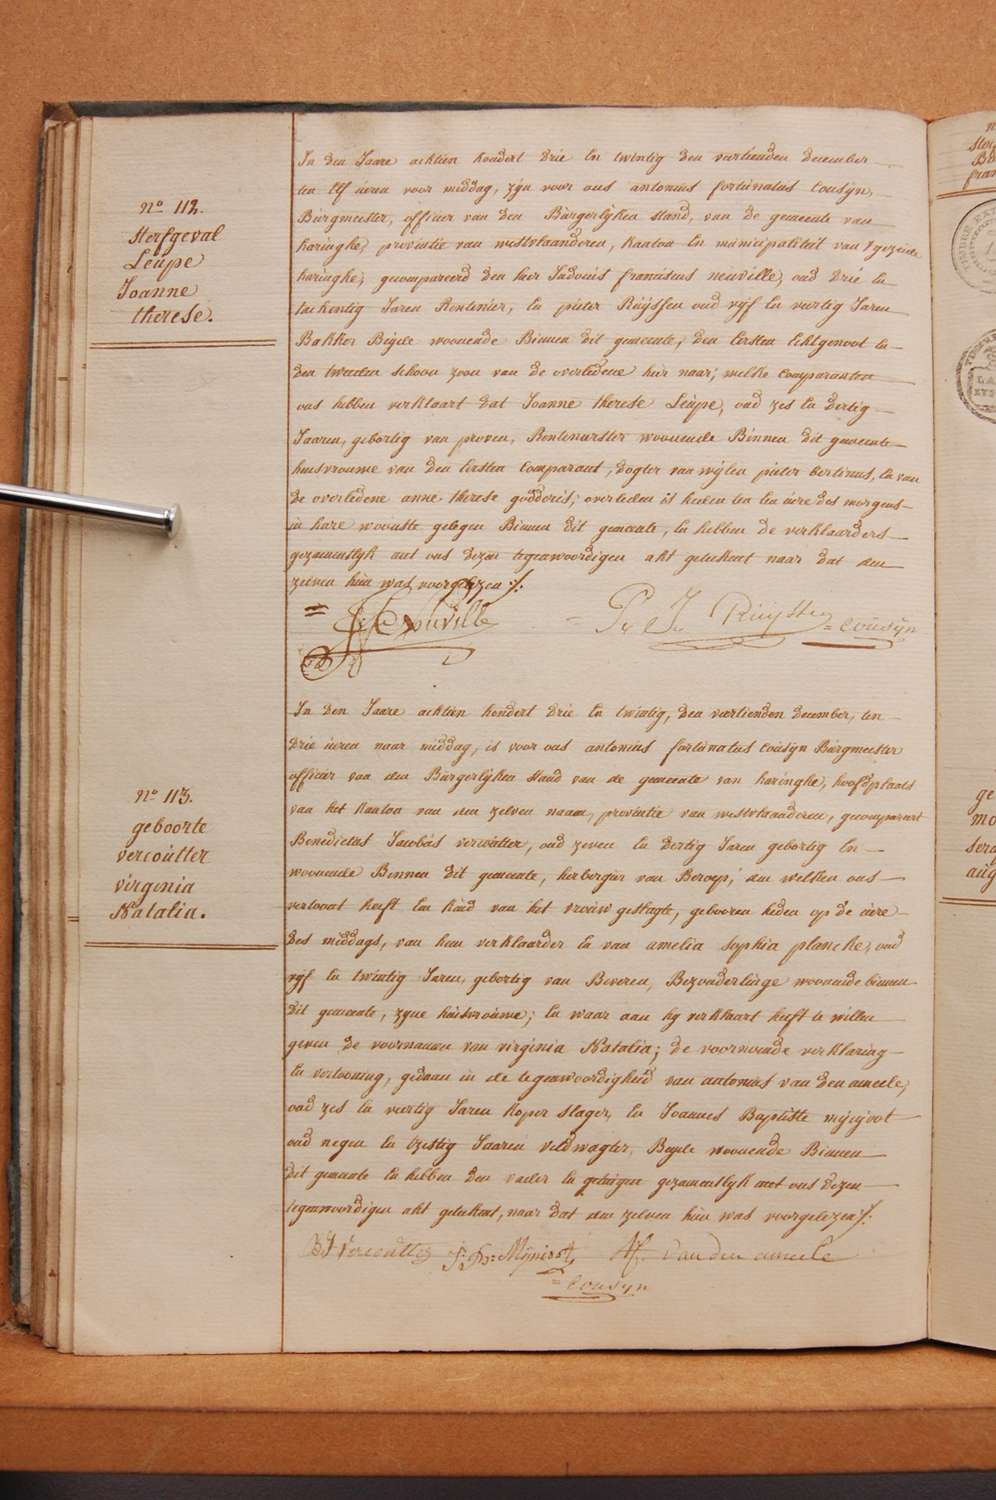 No 112.
Sterfgeval
Leúpe
Joanne
therese.
In den Jaare achtien hondert drie en twintig den veertienden december
ten elf úeren voor middag, zÿn voor ons antonius fortúnatús Coúsÿn,
Búrgmeester, officier van den Búrgerlÿken stand, van de gemeente van
haringhe, provintie van westvlaanderen, kanton en municipaliteit van
haringhe, gecompareerd den heer franciscus neuville, oud drie en
tachentig Jaren Rentenier, en pieter Rúÿssen oud vÿf en veertig Jaren
Bakker Beÿde woonende Binnen dit gemeente, den Eersten Echtgenoot en
den tweeden schoon zoon van de overledene hier naar, welke Comparanten
ons hebben verklaart dat Joanne therese Leúpe, oud zes en dertig
Jaaren, gebortig van proven, Rentenierster woonende Binnen dit gemeente
huisvrouwe van den Eersten Comparant, dogter van wÿlen pieter bertinus, en van
de overledene anne therese godderis, overleden is heden ten een úire des morgens
in hare woonste gelegen Binnen dit gemeente, en hebben de verklaarders
gezamentlÿk met ons dezen tegenwoordigen akt geteekent naar dat den
zelven hún was voorgelezen ./.
Neuville
P. J. Rúÿssen
Coúsÿn
No 113.
geboorte
vercoútter
virginia
Natalia.
In den Jaare achtien hondert drie en twintig, den veertienden december, ten
drie úeren naar middag, is voor ons antonius fortúnatus Coúsÿn Búrgmeester
officier van den Búrgerlÿken stand van de gemeente van haringhe, hoofdplaats
van het kanton van den zelven naam, provintie van westvlaanderen, gecompareert
Benedictus Jacobús vercoútter, oud zeven en dertig Jaren gebortig en
woonende Binnen dit gemeente, herbergier van Beroep, den welken ons
vertoont heeft een kind van het vroúw geslagte, gebooren heden op de úire
des middags, van hem verklaarder en van amelia sophia plancke, oud
vÿf en twintig Jaren, gebortig van Beveren, Bezonderlinge woonende binnen
dit gemeente, zÿne húisvroúwe; en waar aan hÿ verklaart heeft te willen
geven de voornamen van virginia Natalia; de voornoemde verklaring
en vertooning, gedaan in de tegenwoordigheid van antonius van den ameele,
oud zes en veertig Jaren koper slager, en Joannes Baptiste mÿnjoot
oud negen en tzestig Jaaren veldwagter, Beÿde woonende Binnen
dit gemeente en hebben den vader en getúigen gezamentlÿk met ons dezen
tegenwoordigen akt geteekent, naar dat den zelven hún was voorgelezen ./.
BJ Vercoútter J. Bte Mÿnjoot Af. Van den ameele
Coúsÿn